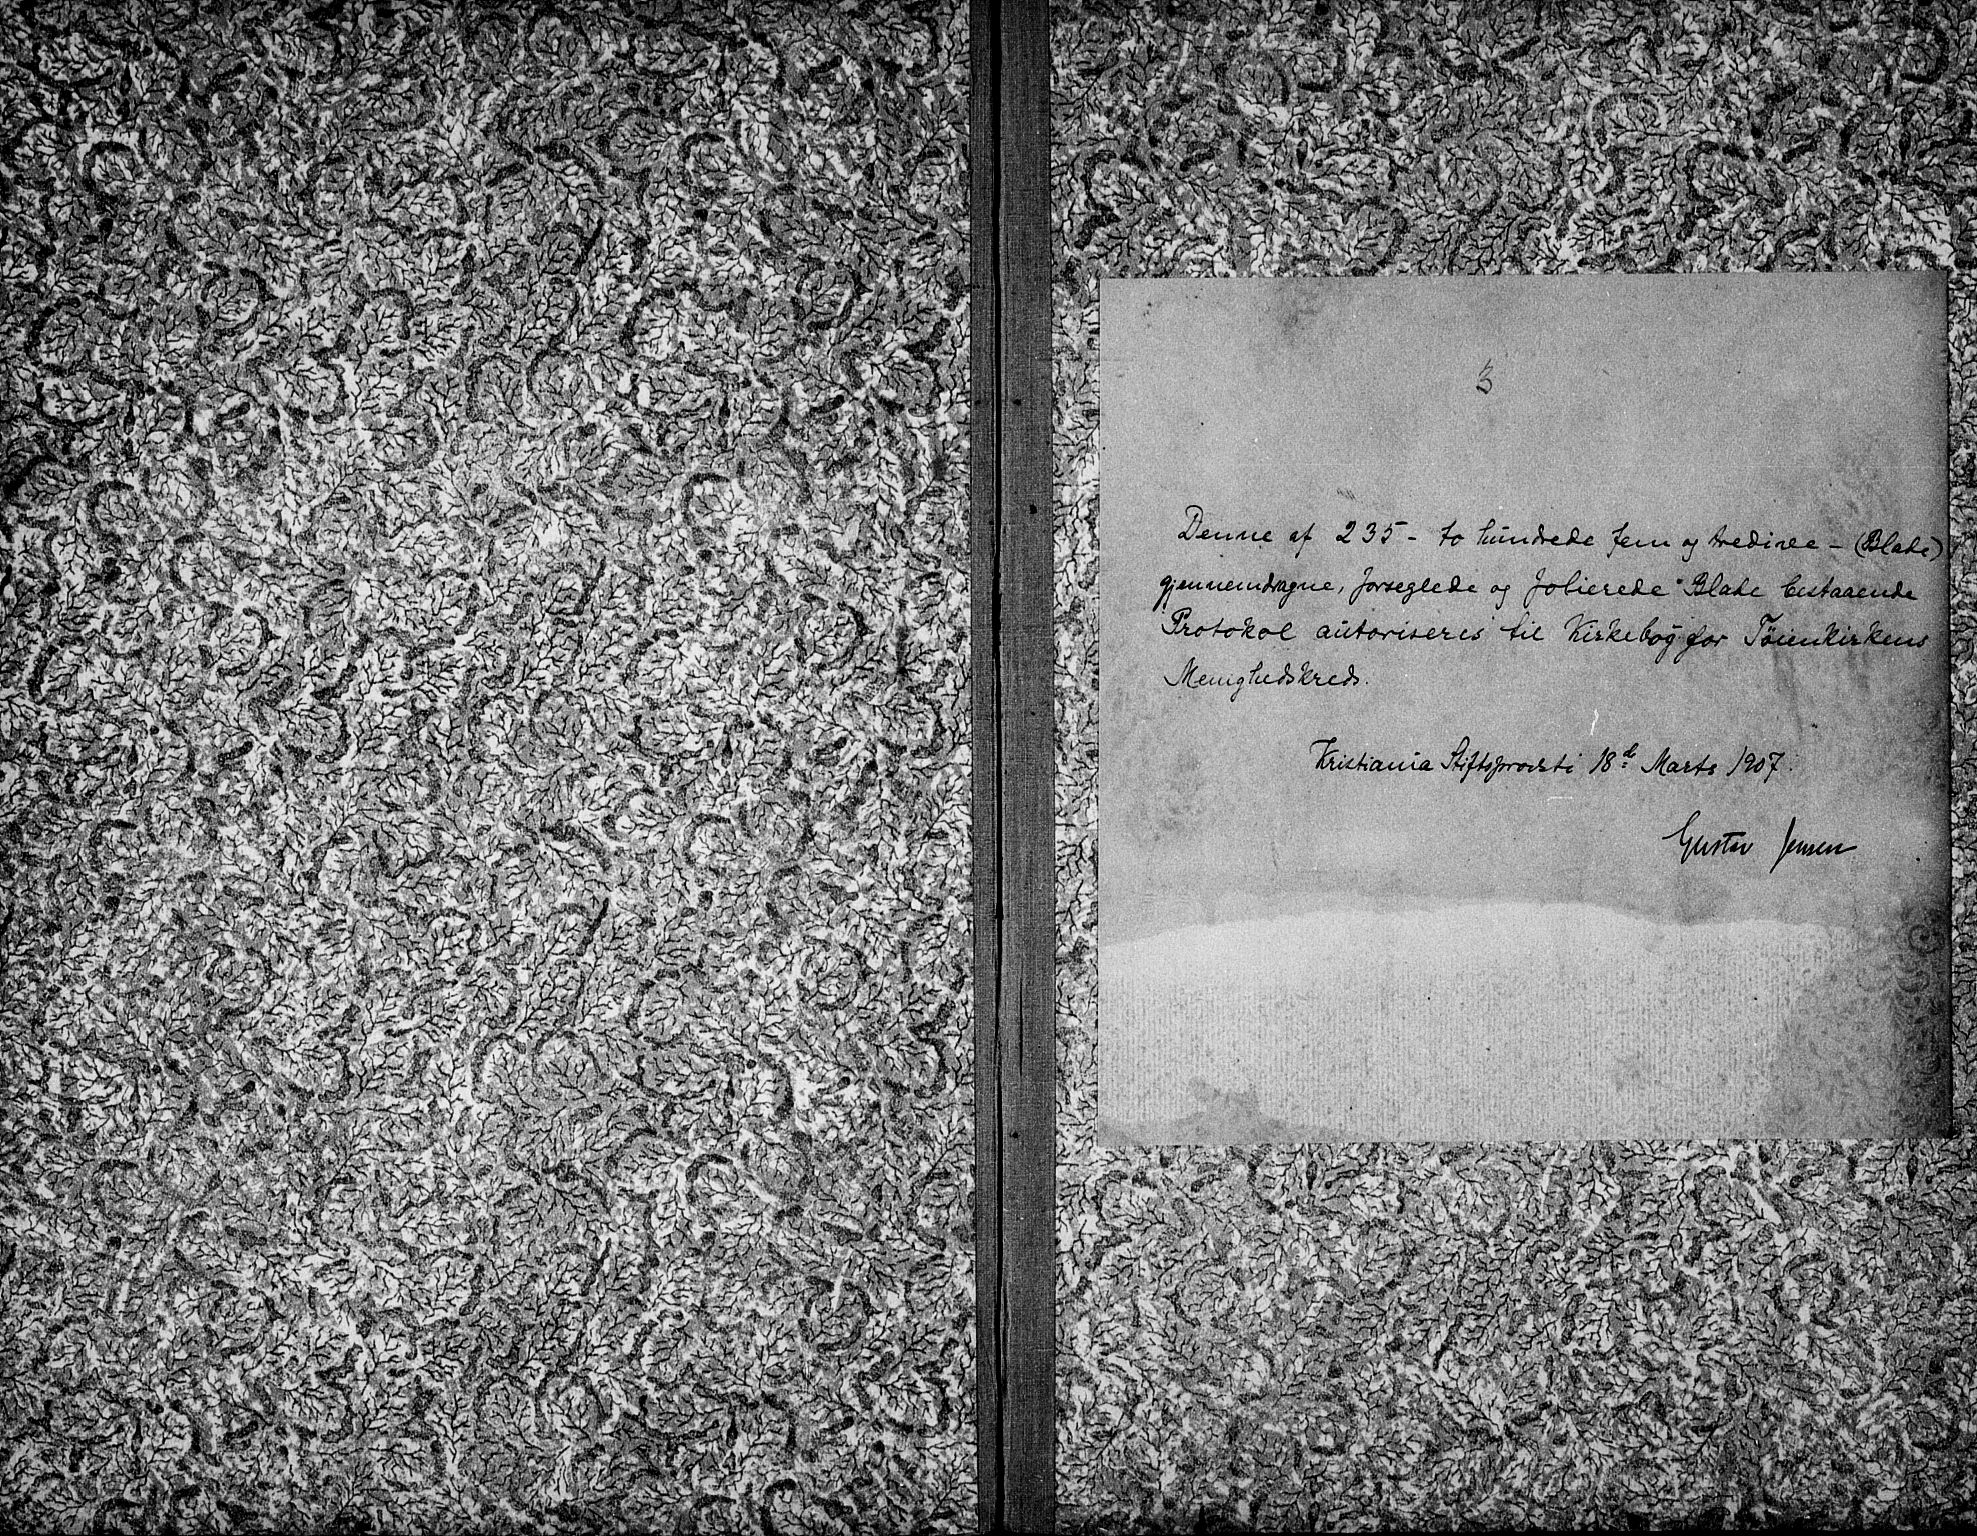 3
Denne af 235 - to hundrede fem og tredive - (Blade)
gjennemdragne, forseglede og folierede Blade bestaaende
Protokol autoriseres til Kirkebog for Tøienkirkens
Menighedskreds.
Kristiania Stiftsprovsti 18de Marts 1907.
Gustav Jensen